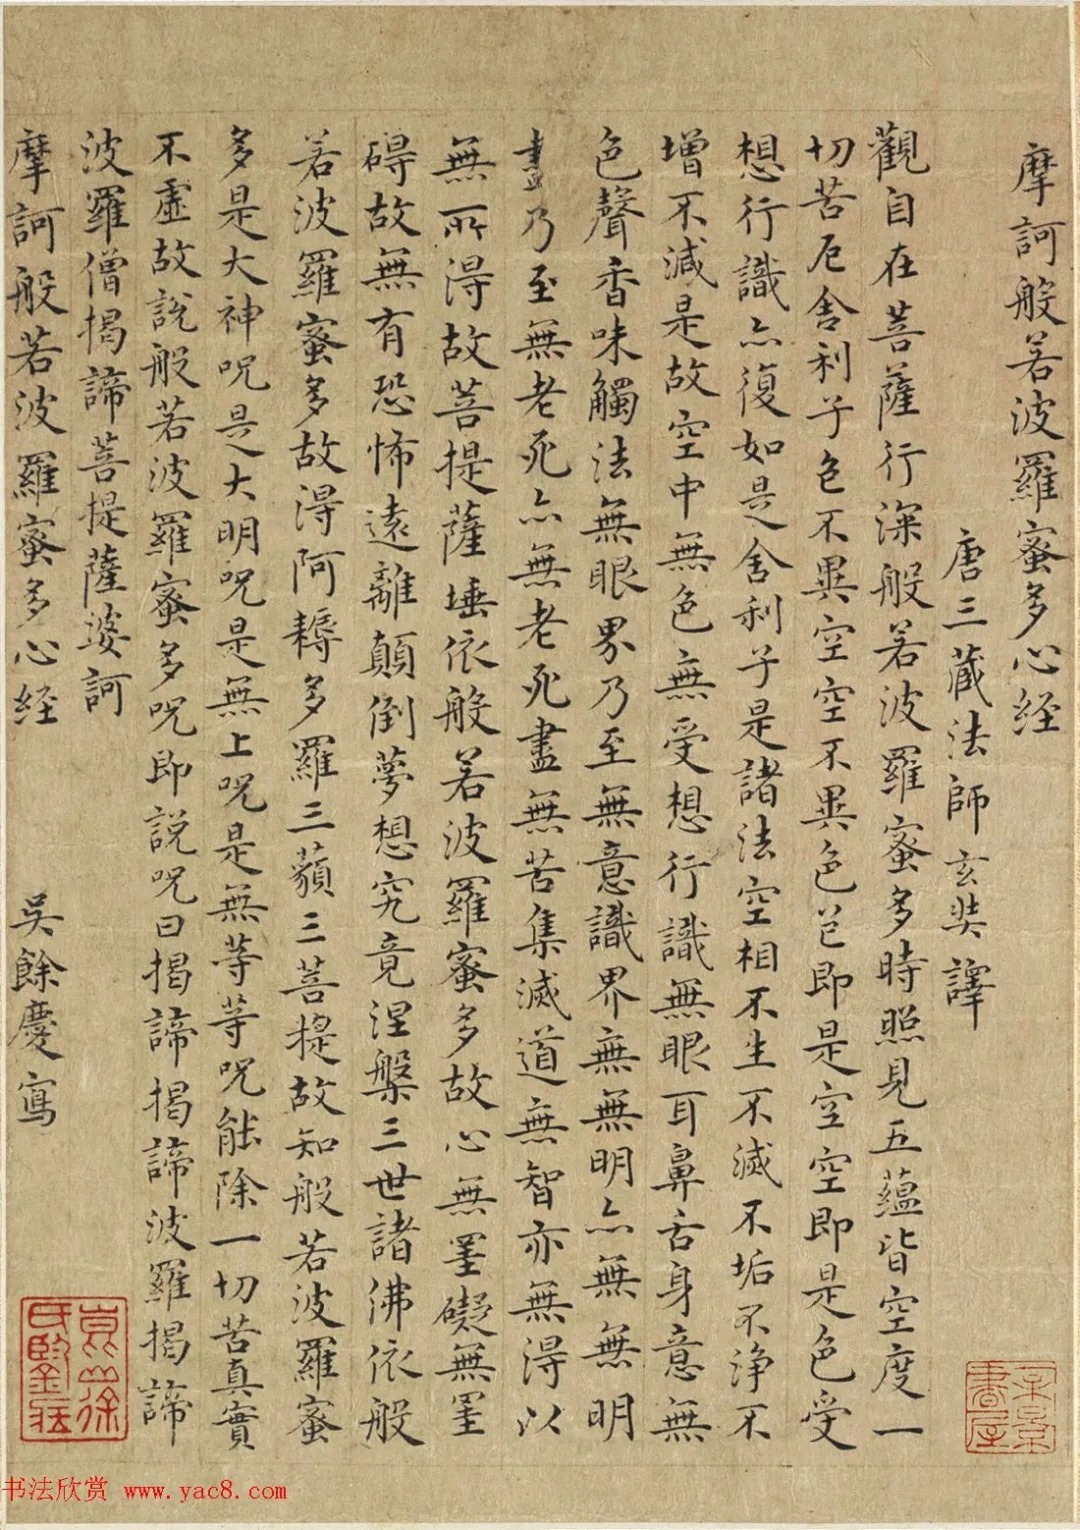 摩訶般若波羅蜜多心経
唐三藏法師玄奘譯
觀自在菩薩行深般若波羅蜜多時照見五蘊皆空度一
切苦厄舍利子色不異空空不異色色即是空空即是色受
想行識亦復如是舍利子是諸法空相不生不滅不垢不淨不
增不減是故空中無色無受想行識無眼耳鼻舌身意無
色聲香味觸法無眼界乃至無意識界無無明亦無無明
盡乃至無老死亦無老死盡無苦集滅道無智亦無得以
無所得故菩提薩埵依般若波羅蜜多故心無罣礙無罣
碍故無有恐怖遠離顛倒夢想究竟涅槃三世諸佛依般
若波羅蜜多故得阿耨多羅三藐三菩提故知般若波羅蜜
多是大神呪是大明呪是無上呪是無等等呪能除一切苦真實
不虛故説般若波羅蜜多呪即説呪曰揭諦揭諦波羅揭諦
波羅僧揭諦菩提薩婆訶
摩訶般若波羅蜜多心経 吳餘慶寫
书法欣赏 www.yac8.com